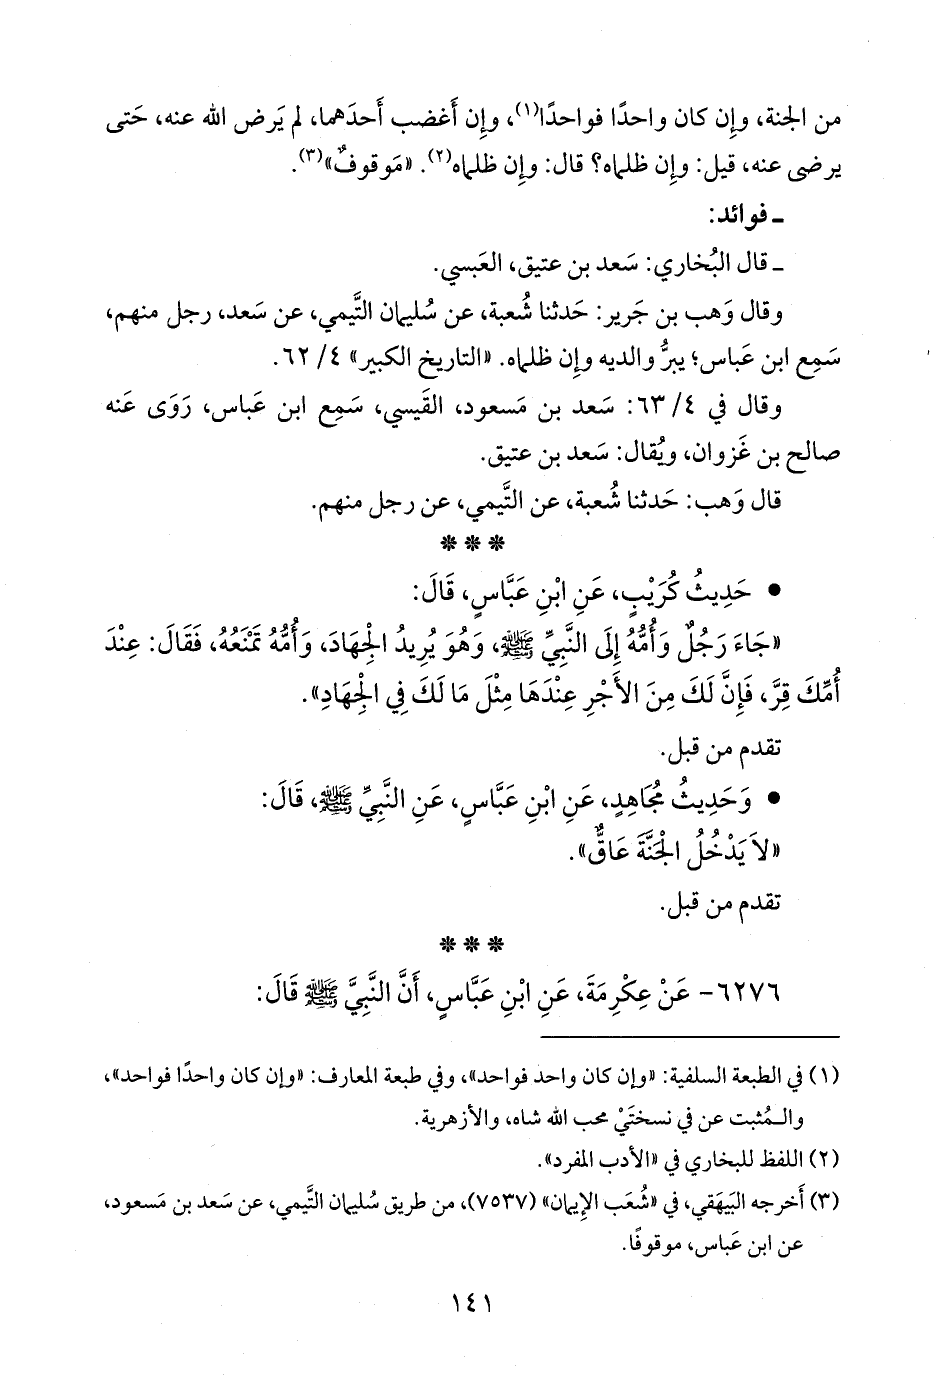 من الجنة، وإِن كان واحدًا فواحدًا(١)، وإِن أَغضب أَحدَهما، لم يَرض الله عنه، حَتى
يرضى عنه، قيل: وإِن ظلماه؟ قال: وإِن ظلماه(٢). «مَوقوفٌ»(٣).
ـ فوائد:
ـ قال البُخاري: سَعد بن عتيق، العَبسي.
وقال وَهب بن جَرير: حَدثنا شُعبة، عن سُليمان التَّيمي، عن سَعد، رجل منهم،
سَمِع ابن عَباس؛ يبرُّ والديه وإِن ظلماه. «التاريخ الكبير» ٤/ ٦٢.
وقال في ٤/ ٦٣: سَعد بن مَسعود، القَيسي، سَمِع ابن عَباس، رَوَى عَنه
صالح بن غَزوان، ويُقال: سَعد بن عتيق.
قال وَهب: حَدثنا شُعبة، عن التَّيمي، عن رجل منهم.
***
• حَدِيثُ كُرَيْبٍ، عَنِ ابْنِ عَبَّاسٍ، قَالَ:
«جَاءَ رَجُلٌ وَأُمُّهُ إِلَى النَّبِيِّ ﷺ، وَهُوَ يُرِيدُ الْجِهَادَ، وَأُمُّهُ تَمْنَعُهُ، فَقَالَ: عِنْدَ
أُمِّكَ قِرَّ، فَإِنَّ لَكَ مِنَ الأَجْرِ عِنْدَهَا مِثْلَ مَا لَكَ فِي الْجِهَادِ».
تقدم من قبل.
• وَحَدِيثُ مُجَاهِدٍ، عَنِ ابْنِ عَبَّاسٍ، عَنِ النَّبِيِّ ﷺ، قَالَ:
«لاَ يَدْخُلُ الْجَنَّةَ عَاقٌّ».
تقدم من قبل.
***
٦٢٧٦- عَنْ عِكْرِمَةَ، عَنِ ابْنِ عَبَّاسٍ، أَنَّ النَّبِيَّ ﷺ قَالَ:
(١) في الطبعة السلفية: «وإن كان واحد فواحد»، وفي طبعة المعارف: «وإن كان واحدًا فواحد»،
والـمُثبت عن في نسختَيْ محب الله شاه، والأزهرية.
(٢) اللفظ للبخاري في «الأدب المفرد».
(٣) أَخرجه البَيهَقي، في «شُعَب الإِيمان» (٧٥٣٧)، من طريق سُليمان التَّيمي، عن سَعد بن مَسعود،
عن ابن عَباس، موقوفًا.
١٤١